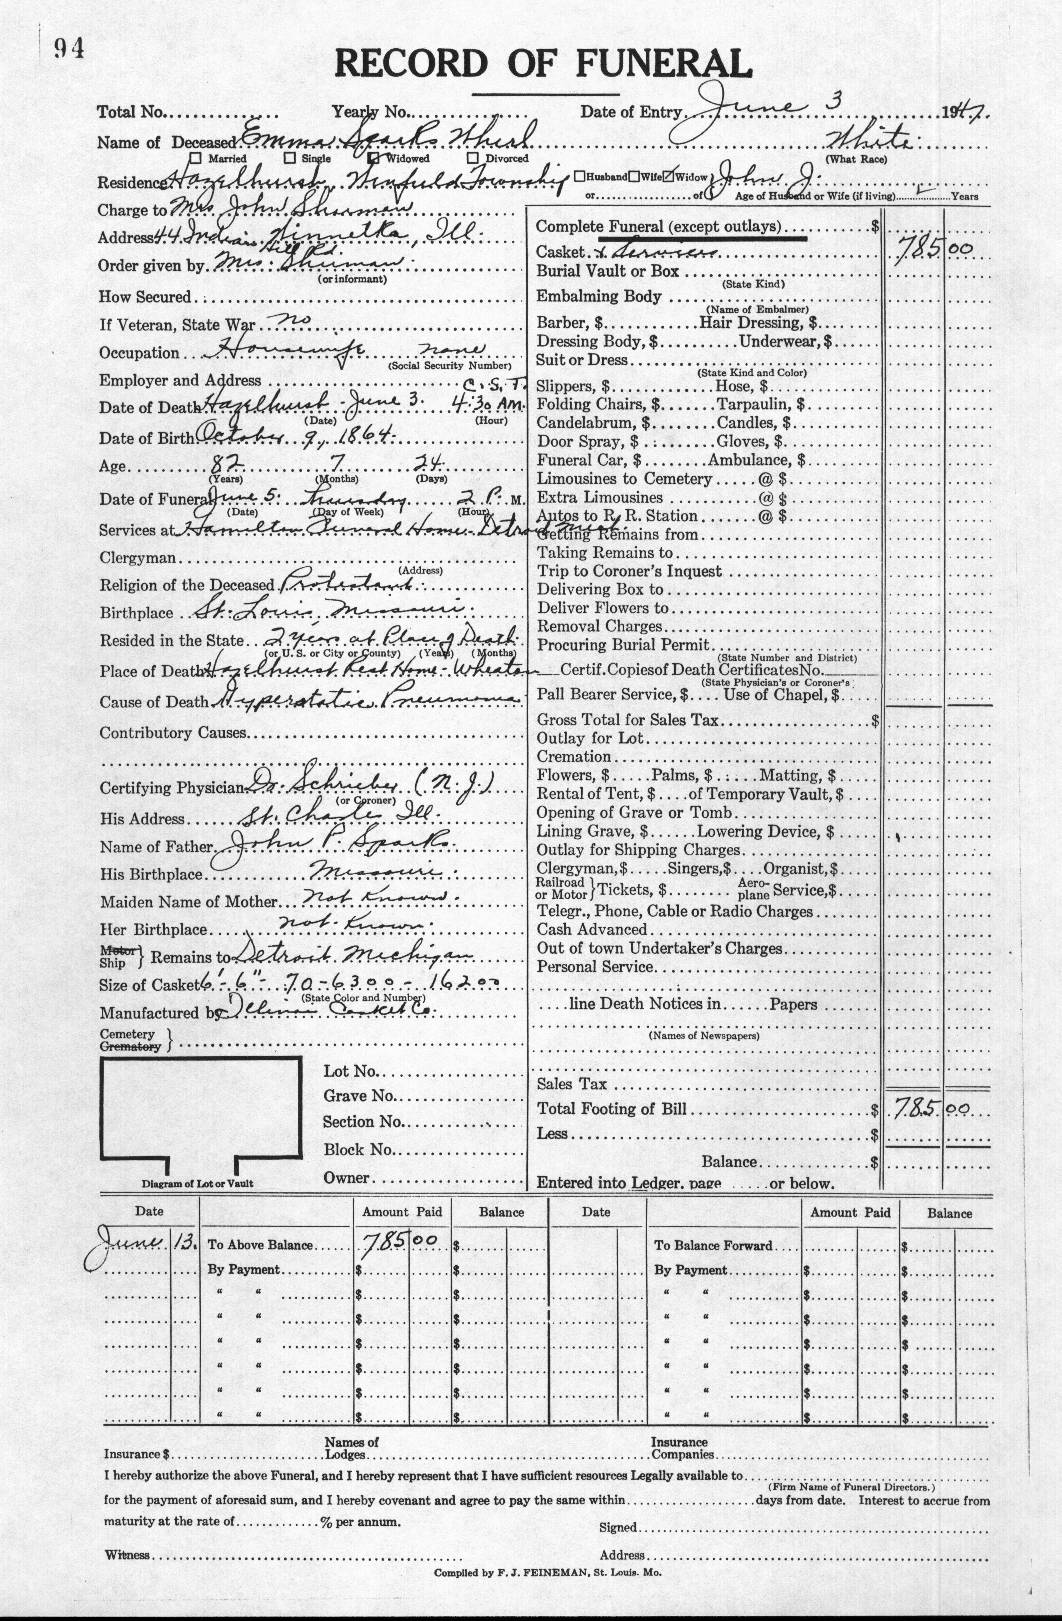 94
RECORD OF FUNERAL
Total No. Yearly No. Date of Entry June 3 1947.
Name of Deceased Emma Sparks Wherl White.
Married Single Widowed Divorced (What Race)
Residence Hazelhurst, Winfield Township Husband Wife Widow John J.
or of Age of Husband or Wife (if living) Years
Charge to Mrs. John Shuman
Address 44 Indian Hill Rd. Winnetka, Ill.
Order given by Mrs. Shuman
(or informant)
How Secured
If Veteran, State War no
Occupation Housewife none
(Social Security Number)
Employer and Address C.S.T.
Date of Death Hazelhurst - June 3. 4:30 A.M.
(Date) (Hour)
Date of Birth October 9, 1864.
Age 82 7 24
(Years) (Months) (Days)
Date of Funeral June 5. Thursday 2 P. M.
(Date) (Day of Week) (Hour)
Services at Hamilton Funeral Home - Detroit Mich.
Clergyman
(Address)
Religion of the Deceased Protestant.
Birthplace St. Louis, Missouri.
Resided in the State 2 years at Place of Death.
(or U. S. or City or County) (Years) (Months)
Place of Death Hazelhurst Rest Home - Wheaton
Cause of Death Hyperstatic Pneumonia
Contributory Causes
Certifying Physician Dr. Schrieber (N. J.)
(or Coroner)
His Address St. Charles Ill.
Name of Father John P. Sparks.
His Birthplace Missouri.
Maiden Name of Mother Not Known.
Her Birthplace Not Known.
Motor
Ship } Remains to Detroit Michigan
Size of Casket 6'-6"- 70-6300- 16200
(State Color and Number)
Manufactured by Illinois Casket Co.
Cemetery
Crematory }
Lot No.
Grave No.
Section No.
Block No.
Owner
Diagram of Lot or Vault
Complete Funeral (except outlays) $
Casket & Services 785 00
Burial Vault or Box
(State Kind)
Embalming Body
(Name of Embalmer)
Barber, $ Hair Dressing, $
Dressing Body, $ Underwear, $
Suit or Dress
(State Kind and Color)
Slippers, $ Hose, $
Folding Chairs, $ Tarpaulin, $
Candelabrum, $ Candles, $
Door Spray, $ Gloves, $
Funeral Car, $ Ambulance, $
Limousines to Cemetery @ $
Extra Limousines @ $
Autos to R. R. Station @ $
Getting Remains from
Taking Remains to
Trip to Coroner's Inquest
Delivering Box to
Deliver Flowers to
Removal Charges
Procuring Burial Permit
(State Number and District)
Certif. Copies of Death Certificates No.
(State Physician's or Coroner's
Pall Bearer Service, $ Use of Chapel, $
Gross Total for Sales Tax $
Outlay for Lot
Cremation
Flowers, $ Palms, $ Matting, $
Rental of Tent, $ of Temporary Vault, $
Opening of Grave or Tomb
Lining Grave, $ Lowering Device, $
Outlay for Shipping Charges
Clergyman, $ Singers, $ Organist, $
Railroad or Motor } Tickets, $ Aero-plane Service, $
Telegr., Phone, Cable or Radio Charges
Cash Advanced
Out of town Undertaker's Charges
Personal Service
line Death Notices in Papers
(Names of Newspapers)
Sales Tax
Total Footing of Bill $ 785 00
Less $
Balance $
Entered into Ledger, page or below.
Date Amount Paid Balance Date Amount Paid Balance
June 13. To Above Balance 785 00 $ To Balance Forward $
By Payment $ $ By Payment $ $
" " $ $ " " $ $
" " $ $ " " $ $
" " $ $ " " $ $
" " $ $ " " $ $
" " $ $ " " $ $
" " $ $ " " $ $
Insurance $ Names of Lodges Insurance Companies
I hereby authorize the above Funeral, and I hereby represent that I have sufficient resources Legally available to
(Firm Name of Funeral Directors.)
for the payment of aforesaid sum, and I hereby covenant and agree to pay the same within days from date. Interest to accrue from
maturity at the rate of % per annum.
Signed
Witness Address
Compiled by F. J. FEINEMAN, St. Louis. Mo.